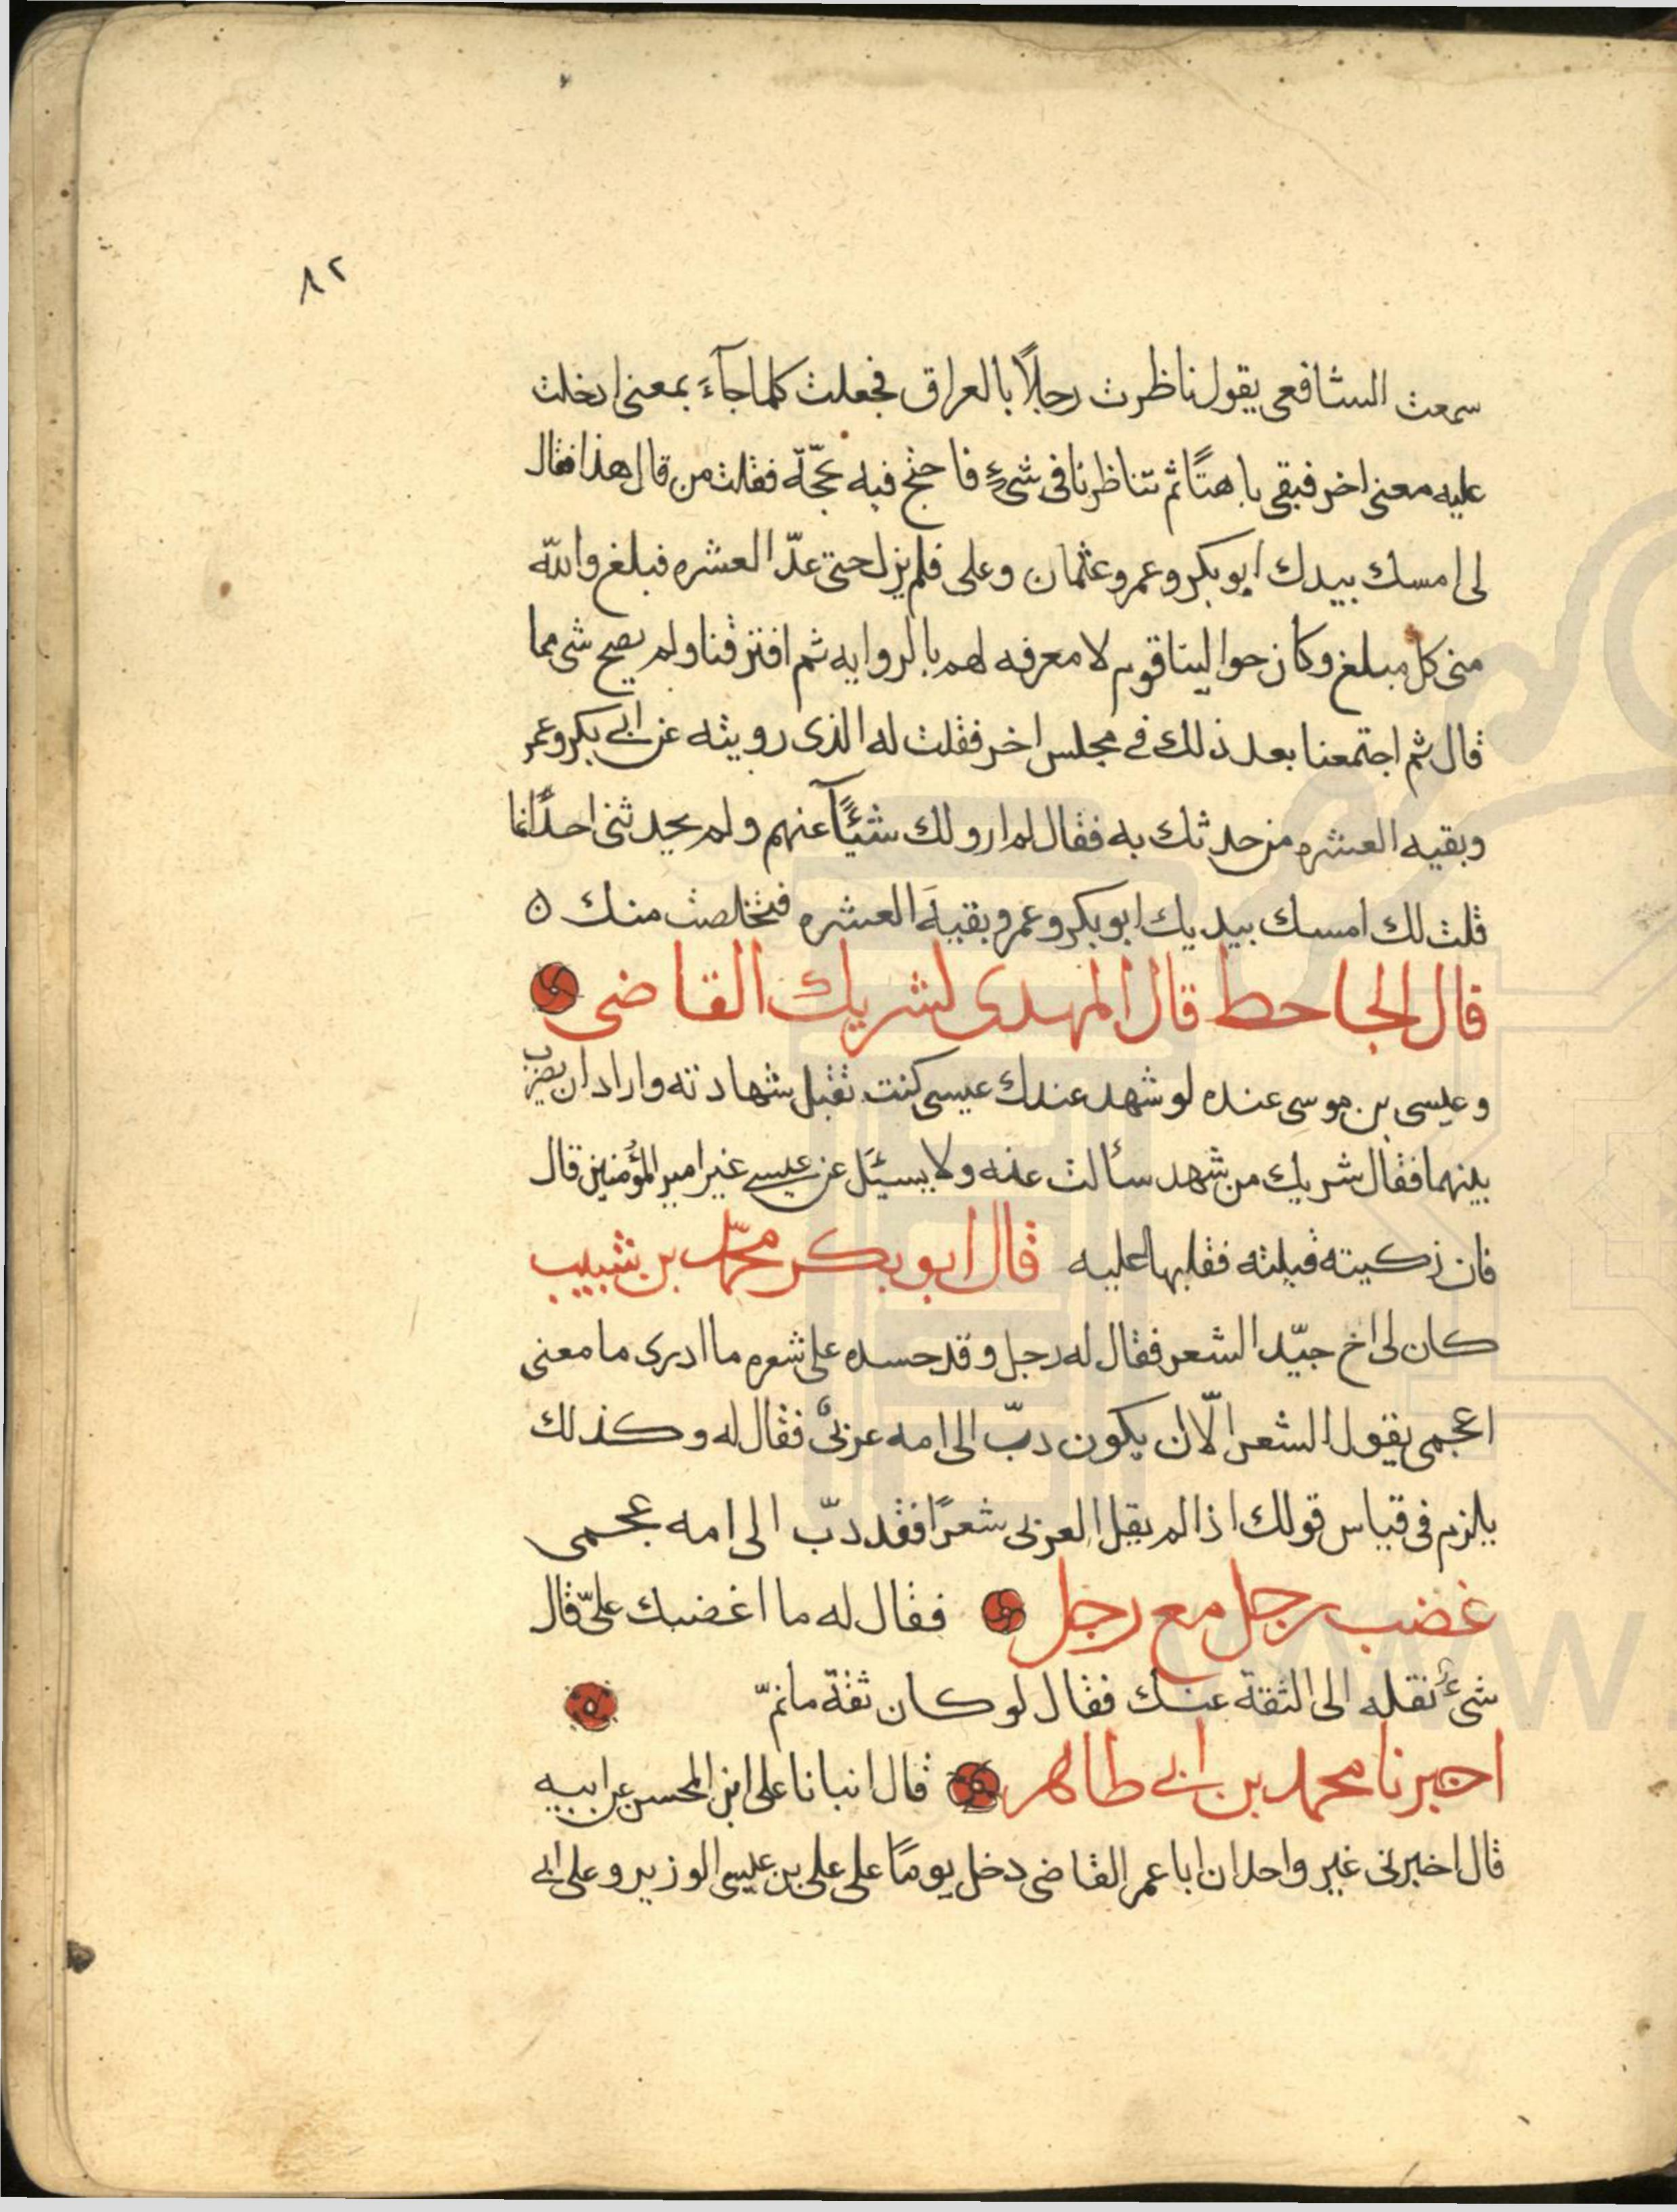 ٨٢
سمعت الشافعى يقول ناظرت رجلاً بالعراق فجعلت كلما جآءَ بمعنى ادخلت
عليه معنى اخر فبقى باهتًا ثم تناظرنا فى شىءٍ فاحتج فيه بحجّة فقلت من قال هذا فقال
لى امسك بيدك ابو بكر وعمر وعثمان وعلى فلم يزل حتى عدّ العشره فبلغ والله
منى كل مبلغ وكان حوالينا قوم لا معرفه لهم بالروايه ثم افترقنا ولم يصح شى مما
قال ثم اجتمعنا بعد ذلك فى مجلس اخر فقلت له الذى رويته عن ابى بكر وعمر
وبقيه العشره من حدثك به فقال لم ارو لك شيئًا عنهم ولم يحدثنى احدًا انما
قلت لك امسك بيديك ابو بكر وعمر وبقيهَ العشره فتخلصت منك ه
قال الجاحط قال المهدى لشريك القاضى
وعيسى بن موسى عنده لو شهد عندك عيسى كنت تقبل شهادته واراد ان يضرب
بينهما فقال شريك من شهد سألت عنه ولا يسئَل عن عيسى غير امير المؤمنين قال
فان زكيته قبلته فقلبها عليه قال ابو بكر محمّد بن شبيب
كان لى اخ جيّد الشعر فقال له رجل وقد حسده على شعره ما ادرى ما معنى
اعجمى يقول الشعر الّا ان يكون دبّ الى امه عربىٌ فقال له وكذلك
يلزم فى قياس قولك اذا لم يقل العربى شعرًا فقد دبّ الى امه عجمى
غضب رجل مع رجل فقال له ما اغضبك علىّ قال
شىءٌ نقله الى الثقة عنك فقال لو كان ثقة ما نمّ
اخبرنا محمد بن ابى طاهر قال انبانا على ابن المحسن عن ابيه
قال اخبرنى غير واحد ان ابا عمر القاضى دخل يومًا على على بن عيسى الوزير وعلى ابى
WWW.